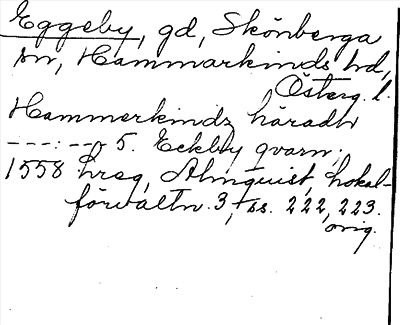 Eggeby, gd, Skönberga
sn, Hammarkinds hd,
Österg. l.
Hammerkindz häradh
---:--- 5. Eckby qvarn;
1558 hreg, Almquist, Lokal-
förvaltn. 3, ss. 222, 223.
orig.